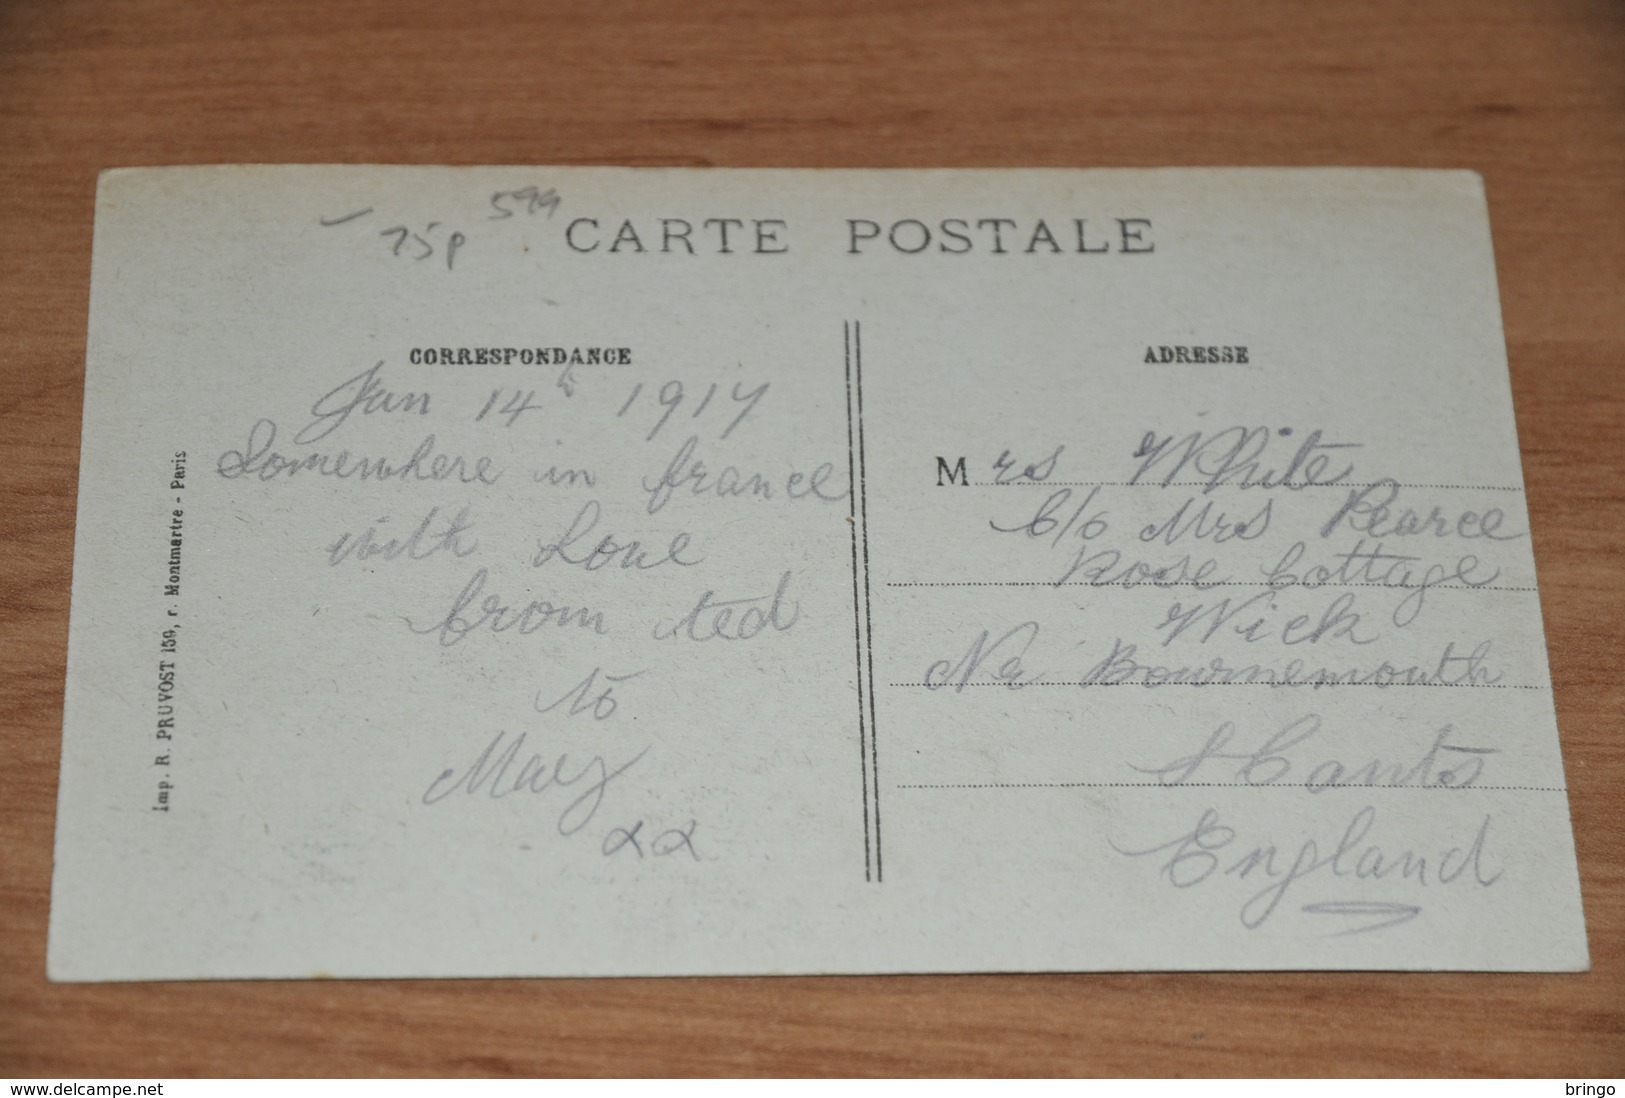 75p 599
CARTE POSTALE
CORRESPONDANCE
Jan 14th 1917
Somewhere in france
with Love
from ted
to
May
xx
Imp. R. PRUVOST 159, r. Montmartre - Paris
ADRESSE
Mrs White
C/o Mrs Pearce
Rose Cottage
Wick
Nr Bournemouth
Hants
England
delcampe.net
bringo